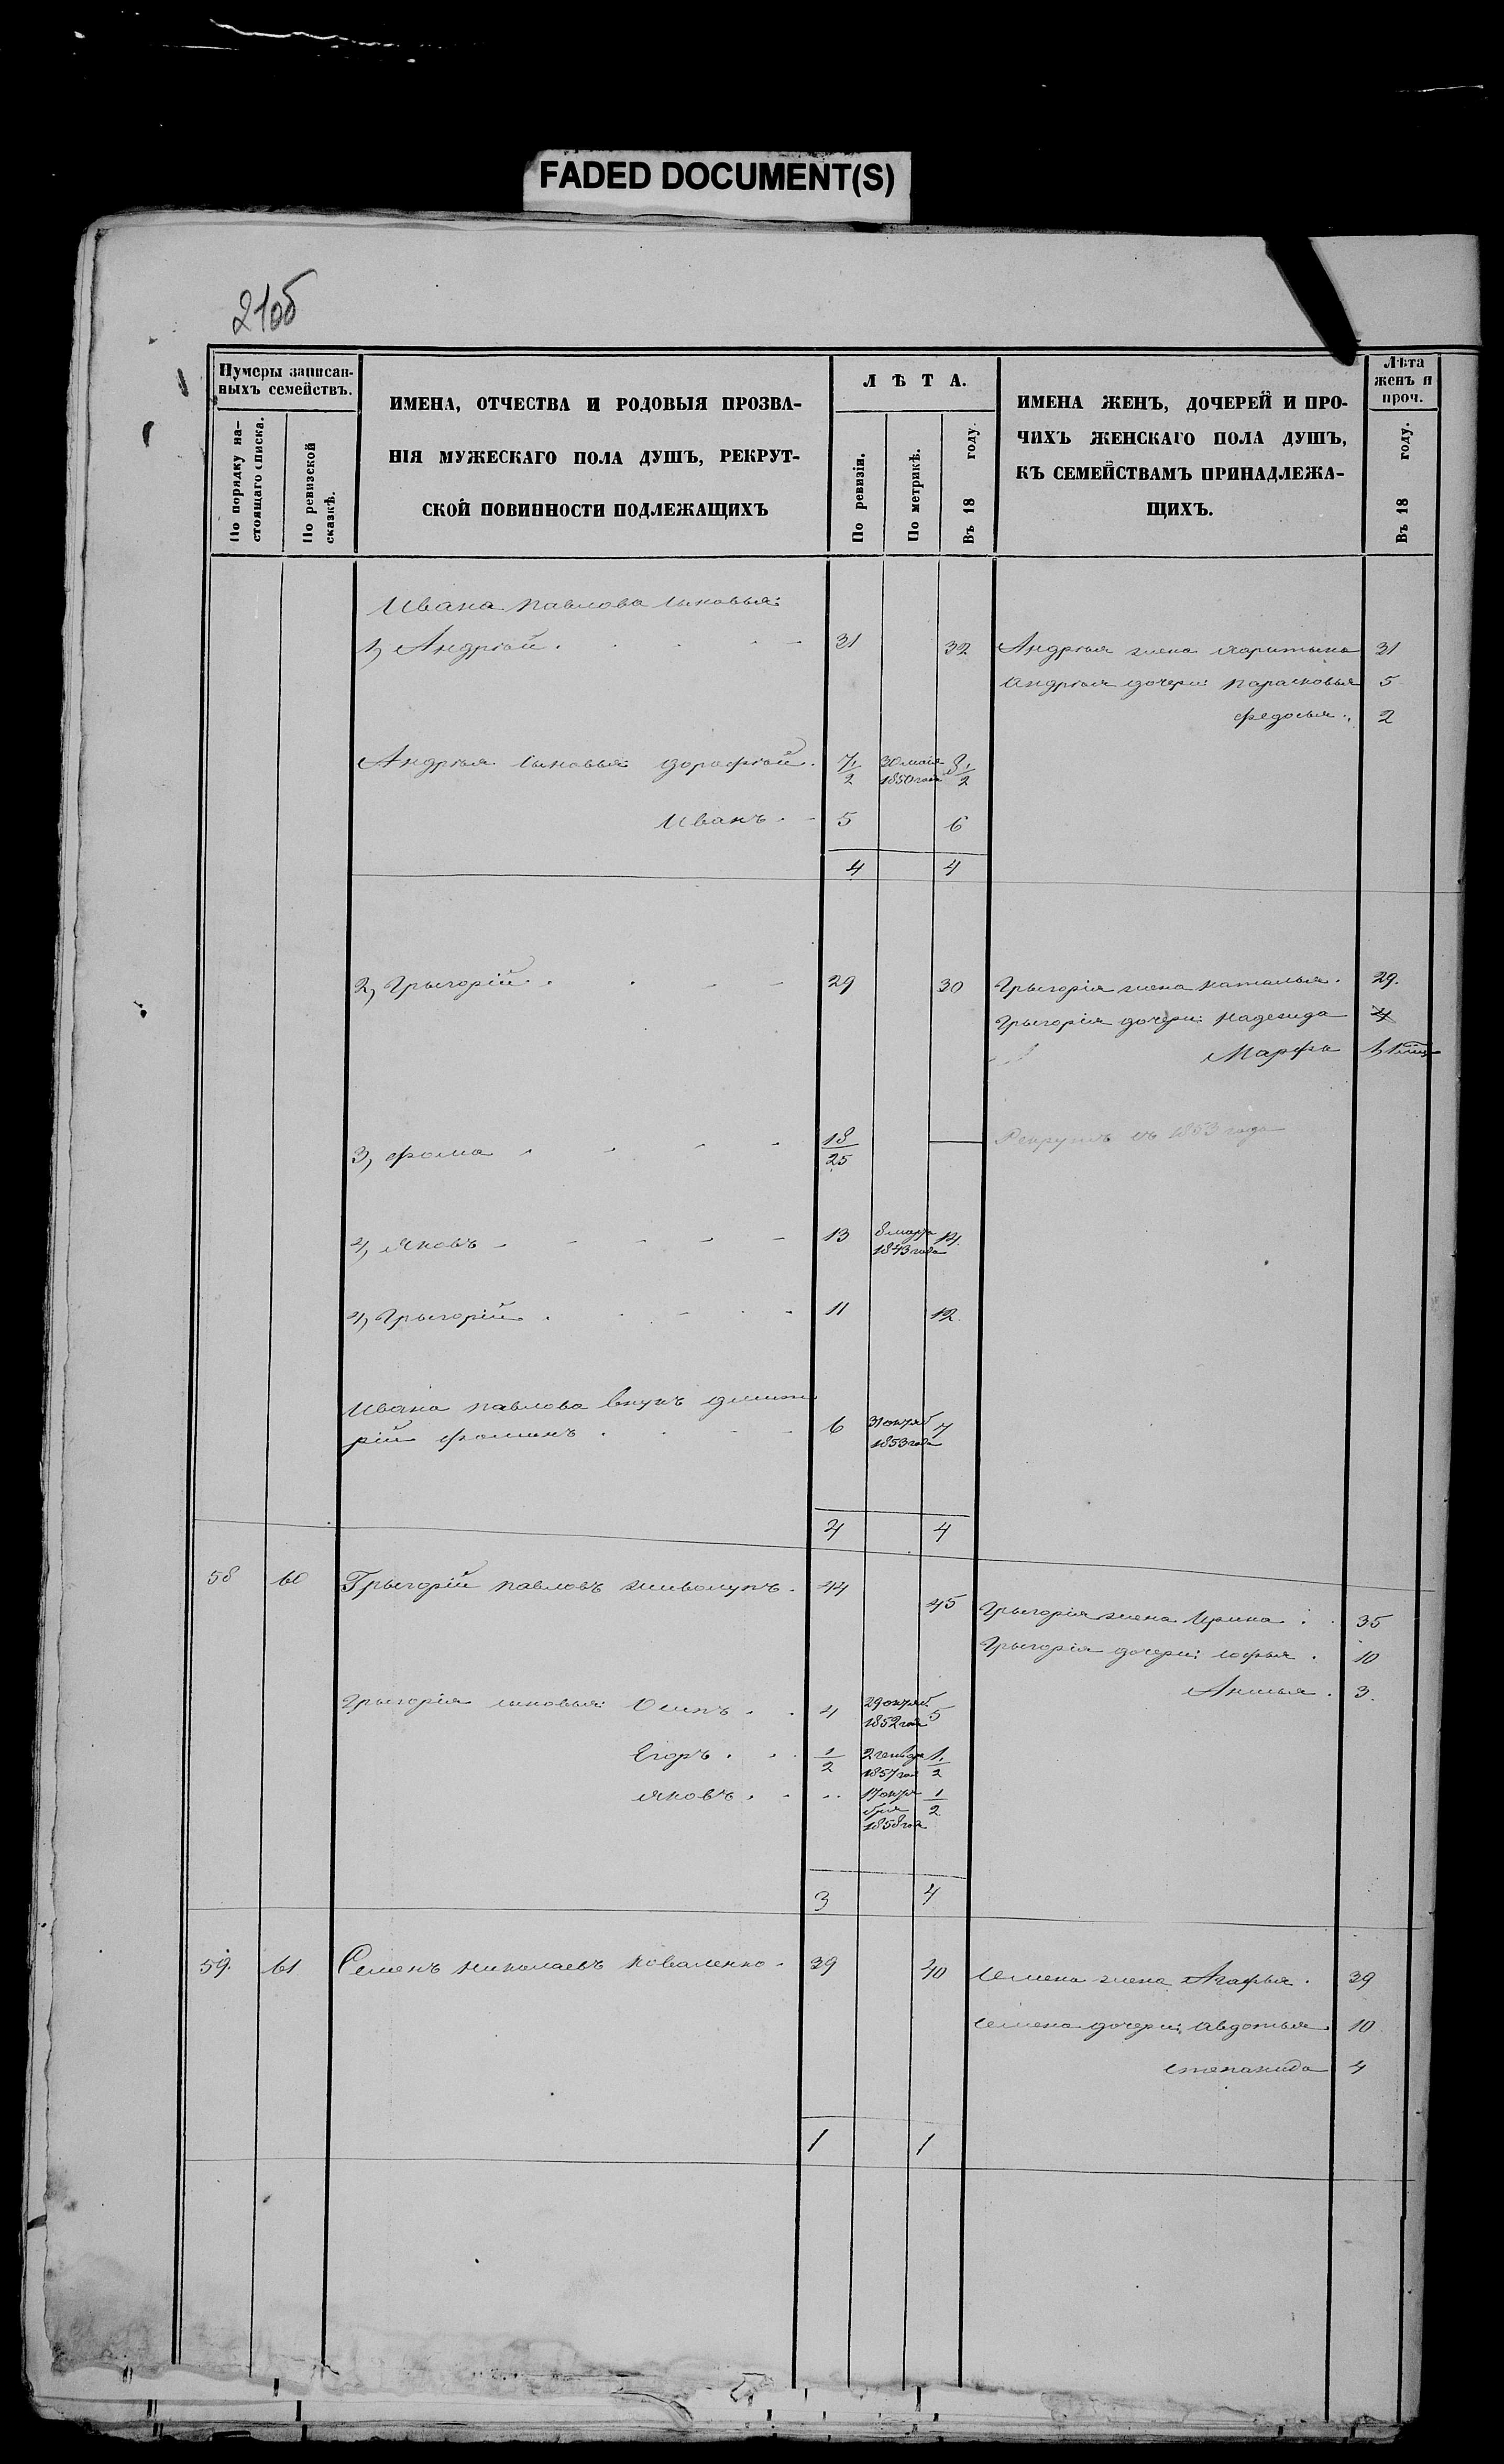 FADED DOCUMENT(S)
21об
Нумеры записан-
ныхъ семействъ.
По порядку на-
стоящаго списка.
По ревизской
сказкѣ.
ИМЕНА, ОТЧЕСТВА И РОДОВЫЯ ПРОЗВА-
НІЯ МУЖЕСКАГО ПОЛА ДУШЪ, РЕКРУТ-
СКОЙ ПОВИННОСТИ ПОДЛЕЖАЩИХЪ
ЛѢТА.
По ревизіи.
По метрикѣ.
Въ 18 году.
ИМЕНА ЖЕНЪ, ДОЧЕРЕЙ И ПРО-
ЧИХЪ ЖЕНСКАГО ПОЛА ДУШЪ,
КЪ СЕМЕЙСТВАМЪ ПРИНАДЛЕЖА-
ЩИХЪ.
Лѣта
женъ и
проч.
Въ 18 году.
Ивана Павлова сыновья:
1, Андрѣй 31 32 Андрѣя жена Харитына 31
Андрѣя дочери: Парасковья 5
Федосья 2
Андрѣя сыновья: Дорофѣй 7 1/2 30 мая 1850 года 8 1/2
Иванъ 5 6
4 4
2, Грыгорій 29 30 Грыгорія жена Наталья 29
Грыгорія дочери: Надежида 4
Марфа
3, Фома 18/25 Рекрутъ съ 1853 года
4, Яковъ 13 8 марта 1843 года 14
4, Грыгорій 11 12
Ивана Павлова внукъ Дмит-
рій Фоминъ 6 31 октяб 1853 года 7
4 4
58 60 Грыгорій Павловъ Живолупъ 44 45 Грыгорія жена Ирина 35
Грыгорія дочери: Софья 10
Аксинья 3
Грыгорія сыновья: Осипъ 4 29 октяб. 1852 года 5
Егоръ 1/2 2 генвар 1857 год 1 1/2
Яковъ 17 октя
бря
1858 год 1/2
3 4
59. 61 Семенъ Николаевъ Коваленко 39 40 Семена жена Агафья 39
Семена дочери: Авдотья 10
Степанида 4
1 1